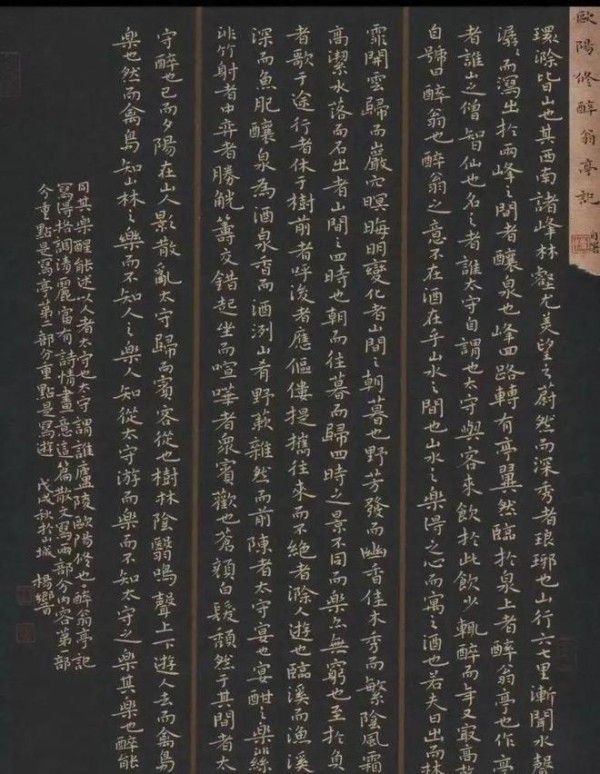 歐陽修醉翁亭記
環滁皆山也其西南諸峰林壑尤美望之蔚然而深秀者琅琊也山行六七里漸聞水聲
潺々而瀉出於兩峰之間者釀泉也峰回路轉有亭翼然臨於泉上者醉翁亭也作亭
者誰山之僧智仙也名之者誰太守自謂也太守與客來飲於此飲少輒醉而年又最高故
自號曰醉翁也醉翁之意不在酒在乎山水之間也山水之樂得之心而寓之酒也若夫日出而林
霏開雲歸而巖穴暝晦明變化者山間之朝暮也野芳發而幽香佳木秀而繁陰風霜
高潔水落而石出者山間之四時也朝而往暮而歸四時之景不同而樂亦無窮也至於負
者歌于途行者休于樹前者呼後者應傴僂提攜往來而不絕者滁人遊也臨溪而漁溪
深而魚肥釀泉為酒泉香而酒洌山肴野蔌雜然而前陳者太守宴也宴酣之樂非絲
非竹射者中弈者勝觥籌交錯起坐而喧嘩者眾賓歡也蒼顏白髮頹然于其間者太
守醉也已而夕陽在山人影散亂太守歸而賓客從也樹林陰翳鳴聲上下遊人去而禽鳥
樂也然而禽鳥知山林之樂而不知人之樂人知從太守游而樂而不知太守之樂其樂也醉能
同其樂醒能述以人者太守也太守謂誰廬陵歐陽修也醉翁亭記
寫得格調清麗富有詩情畫意這篇散文寫兩部分內容第一部
分重點是寫亭第二部分重點是寫遊 戊戌秋於山城 楊